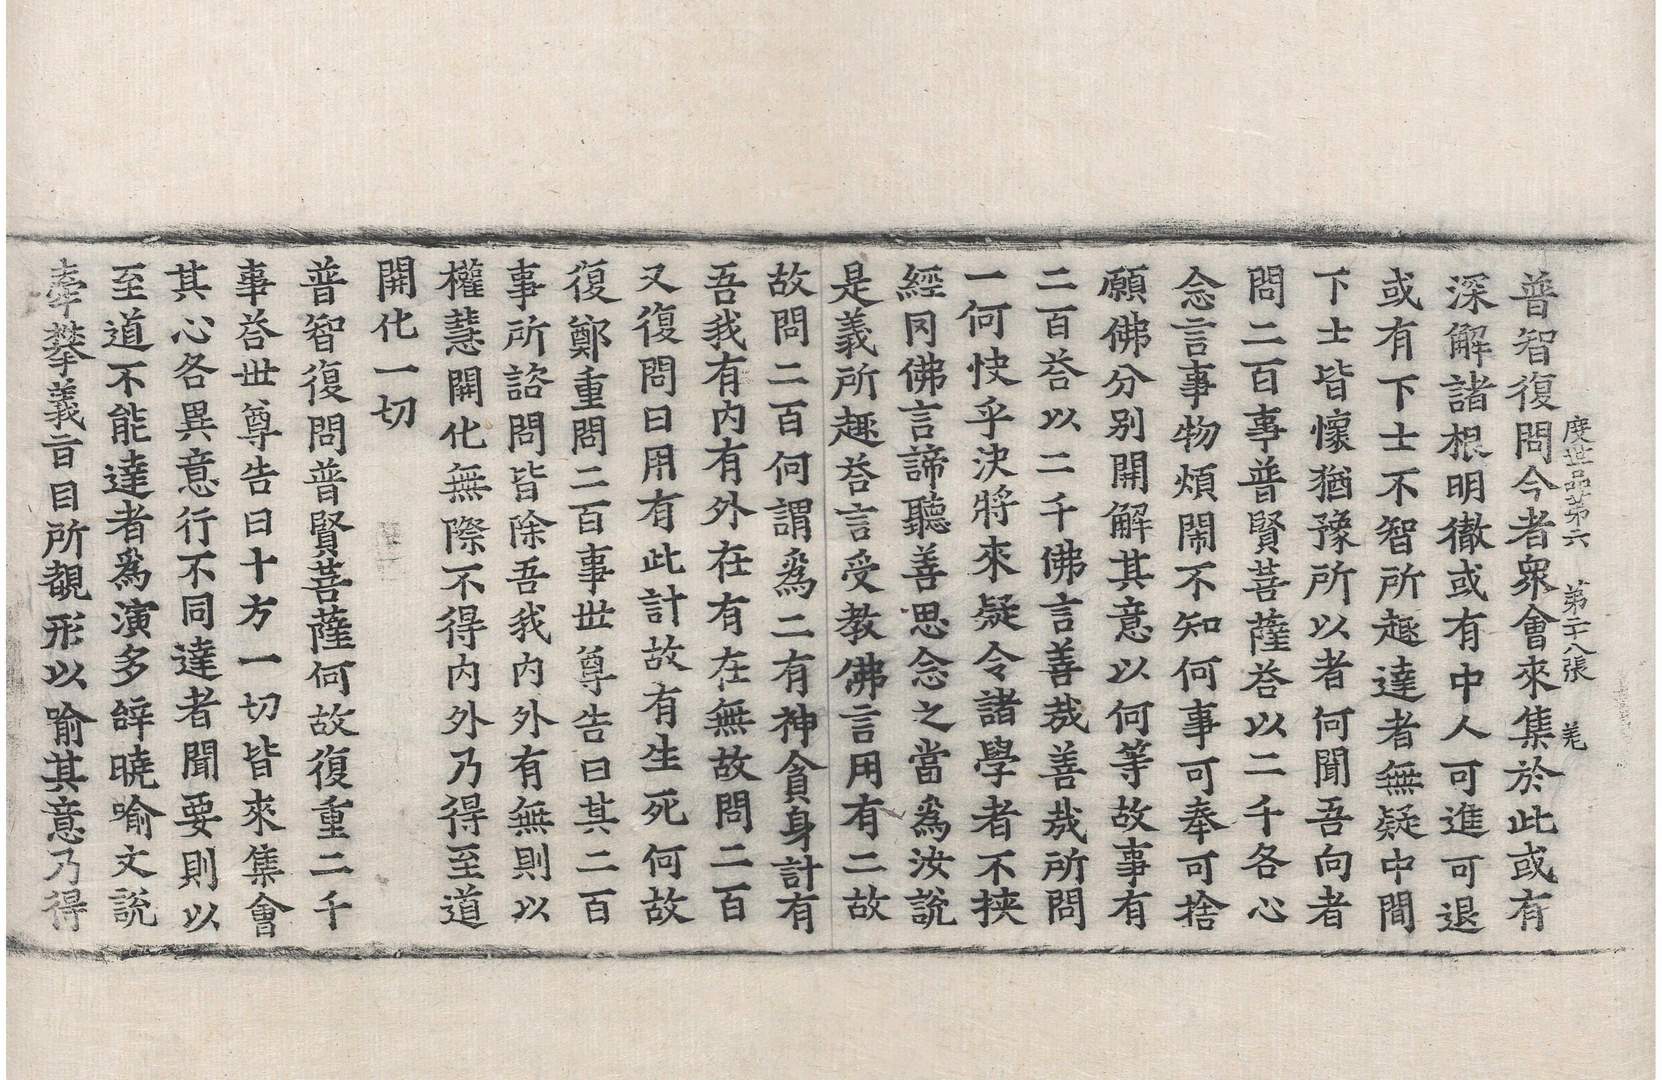 度世品第六　第二十八張　羌
普智復問今者衆會來集於此或有
深解諸根明徹或有中人可進可退
或有下士不智所趣達者無疑中間
下士皆懷猶豫所以者何聞吾向者
問二百事普賢菩薩荅以二千各心
念言事物煩鬧不知何事可奉可捨
願佛分別開解其意以何等故事有
二百荅以二千佛言善哉善哉所問
一何快乎決將來疑令諸學者不挾
經罔佛言諦聽善思念之當爲汝說
是義所趣荅言受教佛言用有二故
故問二百何謂爲二有神貪身計有
吾我有內有外在有在無故問二百
又復問曰用有此計故有生死何故
復鄭重問二百事世尊告曰其二百
事所諮問皆除吾我內外有無則以
權慧開化無際不得內外乃得至道
開化一切
普智復問普賢菩薩何故復重二千
事荅世尊告曰十方一切皆來集會
其心各異意行不同達者聞要則以
至道不能達者爲演多辝曉喻文說
牽攀義旨目所覩形以喻其意乃得